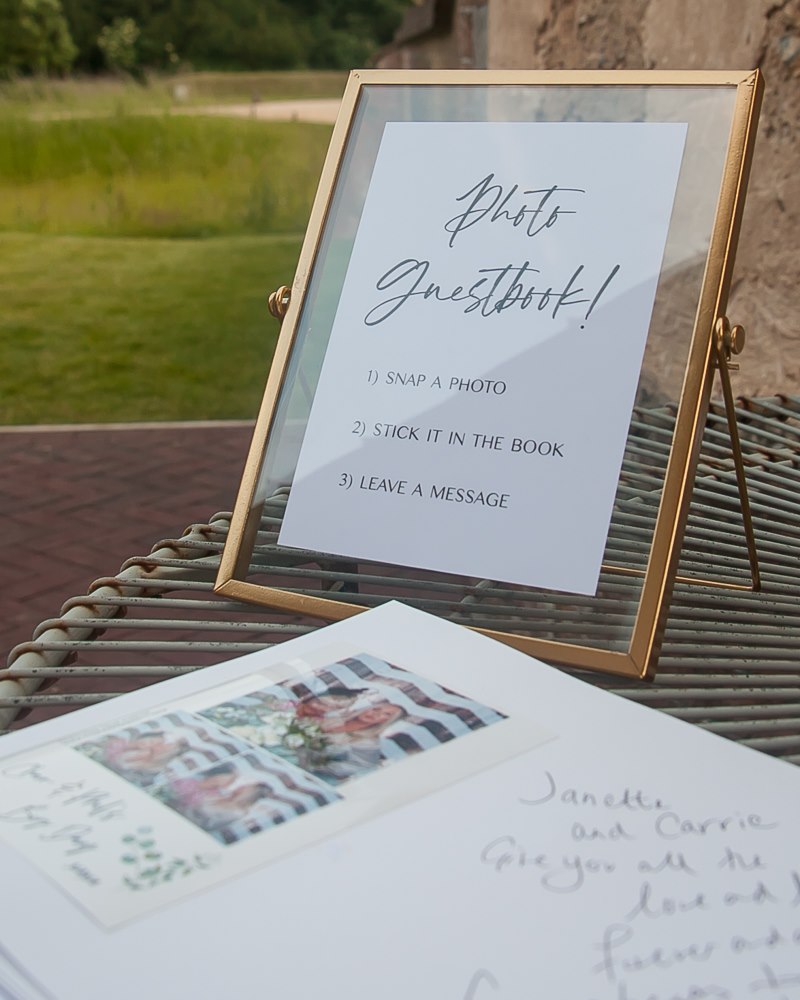 Photo
Guestbook!
1) SNAP A PHOTO
2) STICK IT IN THE BOOK
3) LEAVE A MESSAGE
Janette
and Carrie
Give you all the
love and
forever and